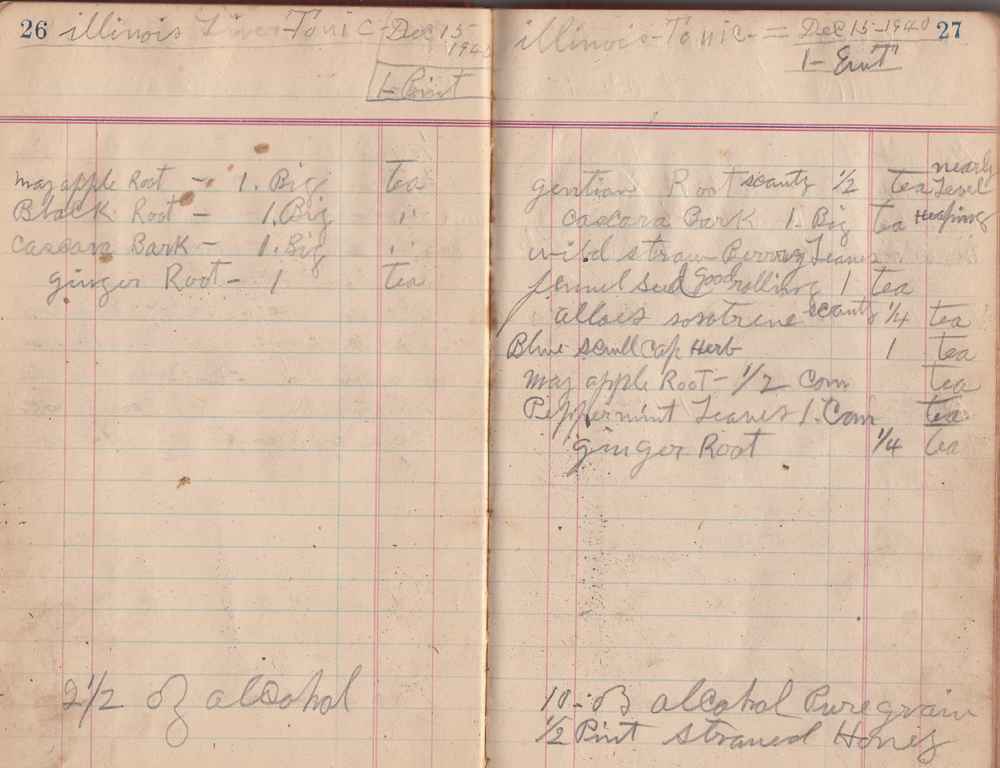 26 illinois Liver-Tonic Dec 15-
194
1-Point
may apple Root - 1. Big tea
Black Root - 1. Big "
Cascara Bark - 1. Big "
ginger Root - 1 tea
2 1/2 oz alcohol
illinois-Tonic-= Dec 15-1940 27
1-
nearly
gentian Root scanty 1/2 tea Level
cascara Bark 1. Big tea Heaping
wild straw Berrry Leaves
fennel Seed good rolling 1 tea
allois socotrene scanty 1/4 tea
Blue scullcap Herb 1 tea
may apple Root - 1/2 Com tea
Peppermint Leaves 1. Com tea
ginger Root 1/4 tea
10-oz alcohol Puregrain
1/2 Pint straned Honey